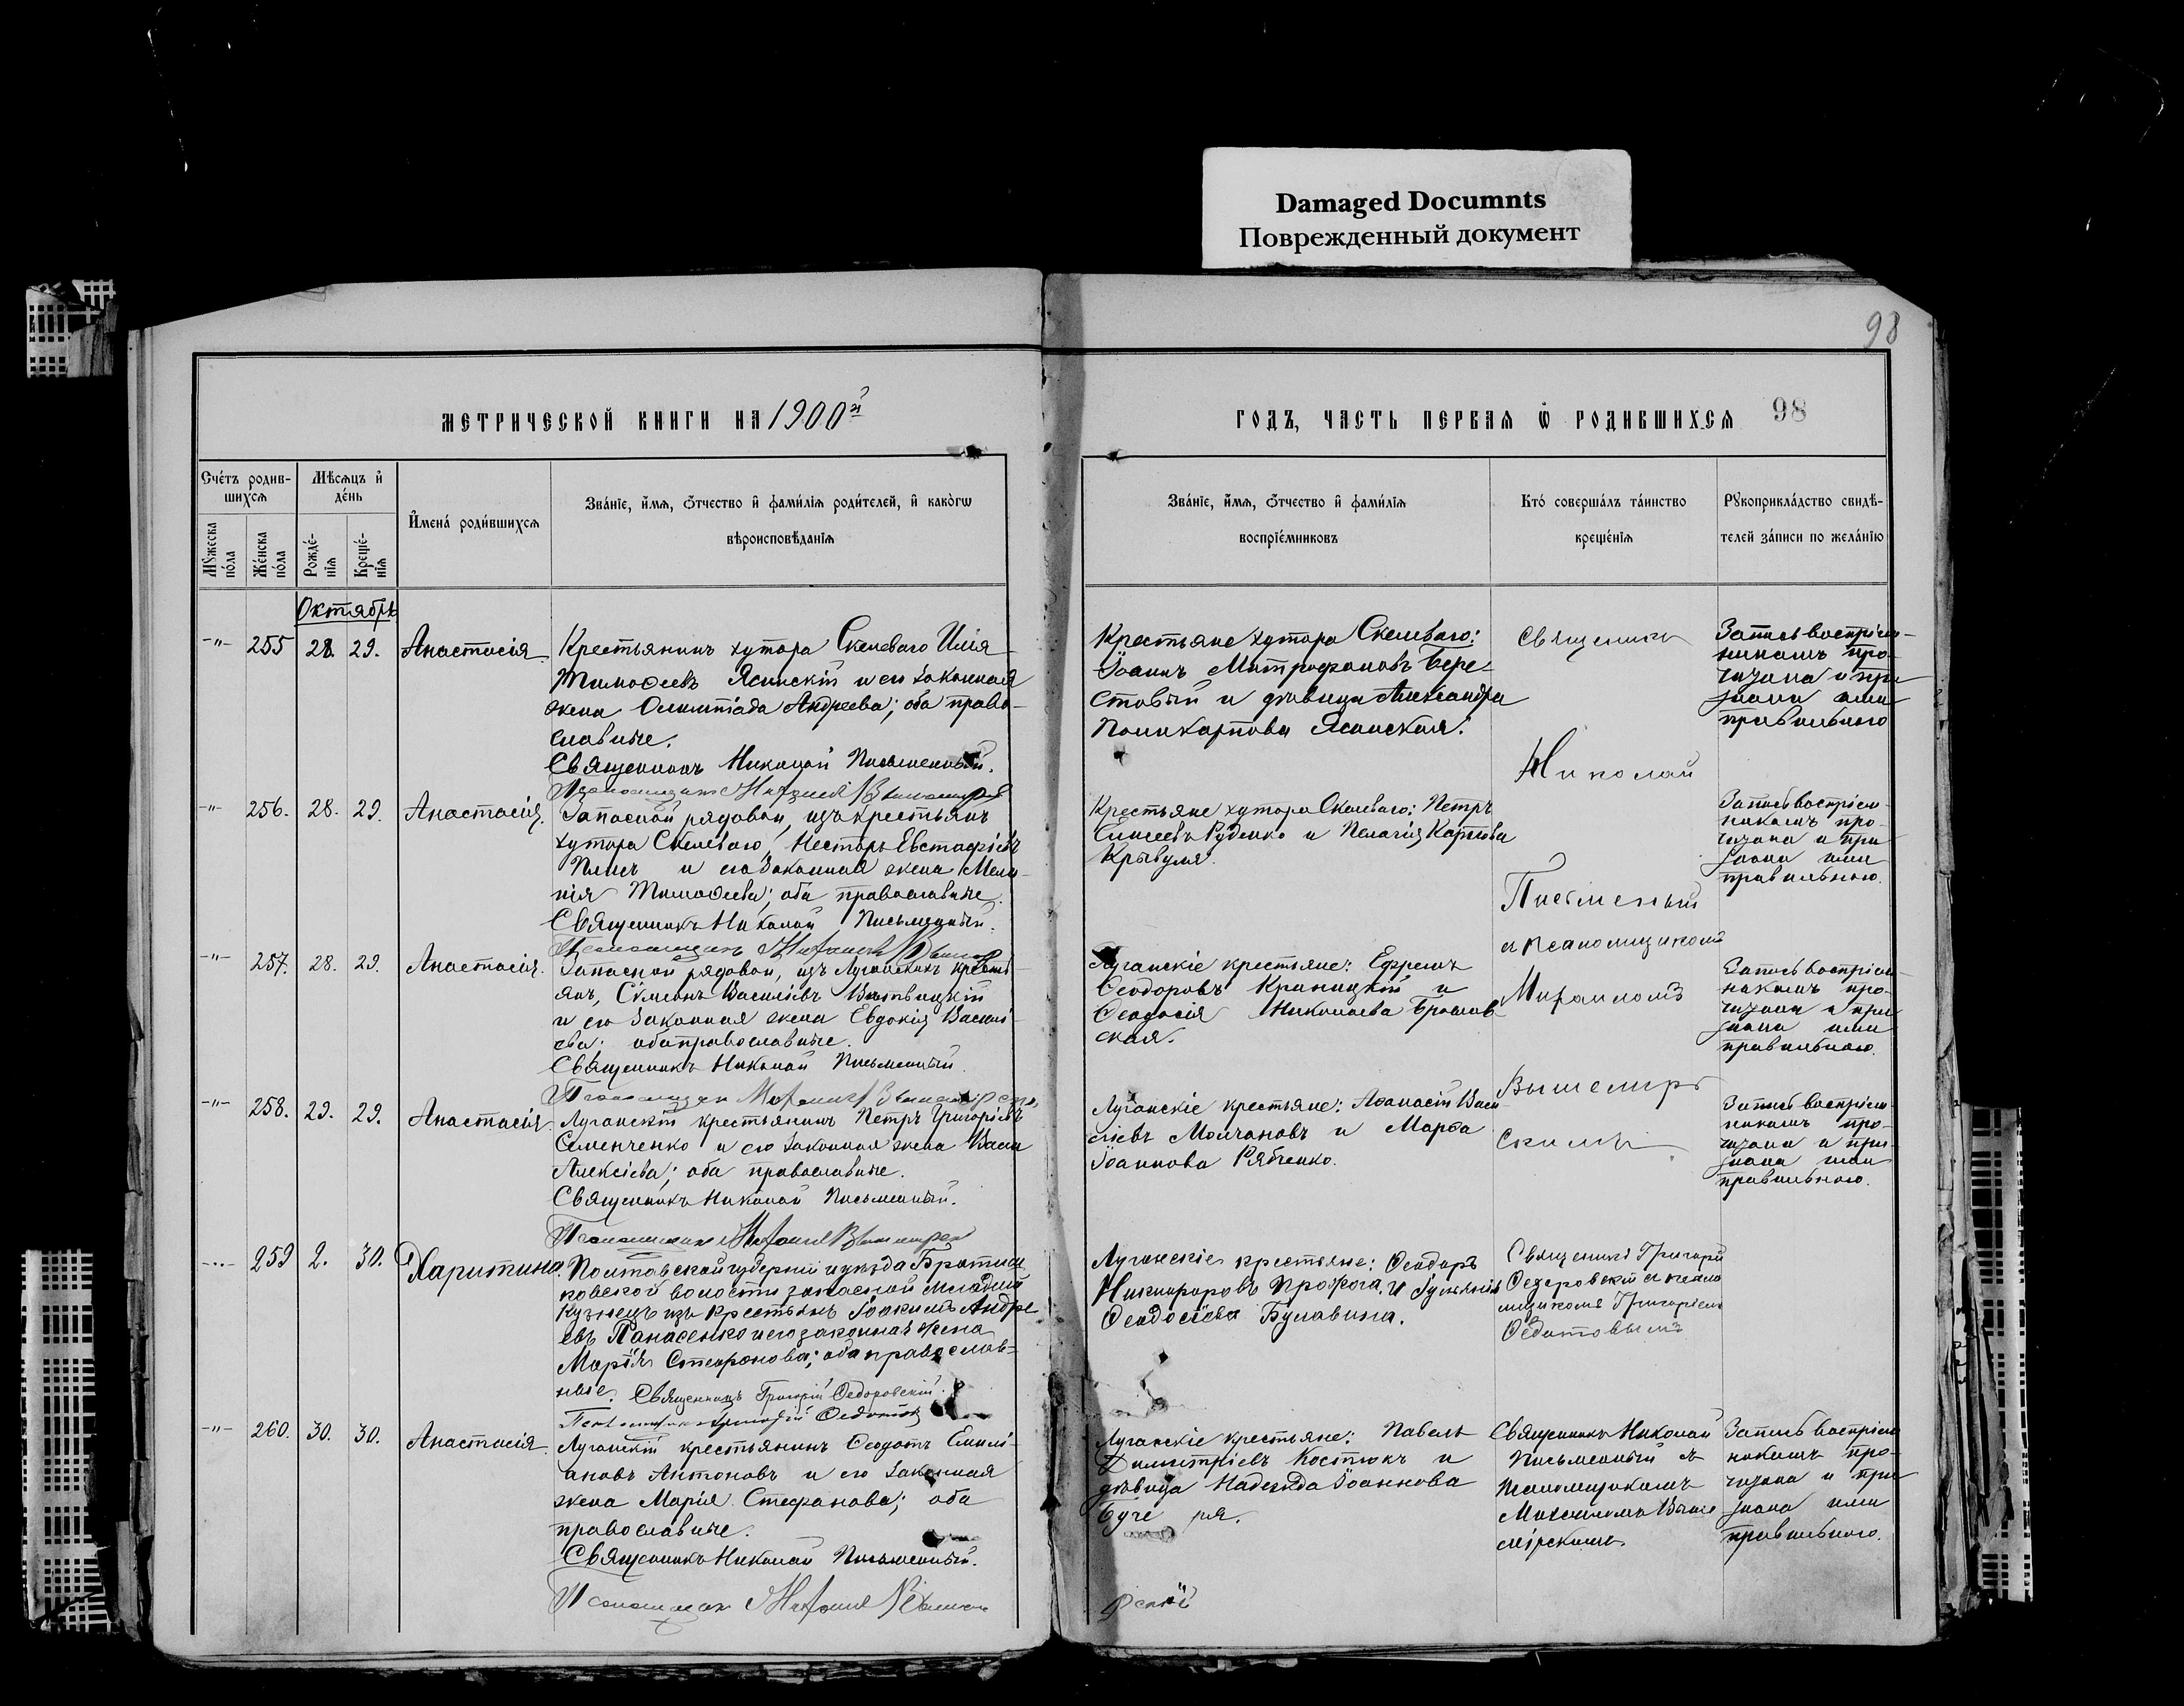 Damaged Documnts
Поврежденный документ
98
МЕТРИЧЕСКОЙ КНИГИ НА 1900й
ГОДЪ, ЧАСТЬ ПЕРВАЯ Ѿ РОДИВШИХСЯ 98
Счетъ родив-
шихся
Мѣсяцъ и
день
Мужеска
пола
Женска
пола
Рожде-
нія
Креще-
нія
Имена родившихся
Званіе, имя, отчество и фамилія родителей, и какогѡ
вѣроисповѣданія
Званіе, имя, отчество и фамилія
воспріемниковъ
Кто совершалъ таинство
крещенія
Рукоприкладство свидѣ-
телей записи по желанію
Октябрь
-"- 255 28. 29. Анастасія.
Крестьянинъ хутора Скелеваго Илія
Тимоѳеевъ Ясинскій и его законная
жена Олимпіада Андреева; оба право-
славные.
Священникъ Николай Письменный.
Псаломщикъ Михаилъ
Крестьяне хутора Скелеваго:
Іоаннъ Митрофановъ Бере-
стовый и дѣвица Александра
Поликарпова Ясинская.
Священникъ
Николай
Письменный
и псаломщикомъ
Михаиломъ
Вышемір
скимъ
Запись воспріем-
никамъ про-
читана и при
знана ими
правильною
-"- 256. 28. 29. Анастасія.
Запасной рядовой, изъ крестьянъ
хутора Скелеваго, Несторъ Евстафіевъ
и его законная жена Мела-
нія Тимоѳеева; оба православные.
Священникъ Николай Письменный.
Псаломщикъ Михаилъ
Крестьяне хутора Скелеваго: Петръ
Елисеевъ Руденко и Пелагія Карпова
Крывуля.
Запись воспріем-
никамъ про-
читана и при
знана ими
правильною.
-"- 257. 28. 29. Анастасія.
Запасной рядовой, изъ Луганскихъ кресть-
янъ, Сѵмеонъ Василіевъ
и его законная жена Евдокія Васили-
ева; оба православные.
Священникъ Николай Письменный.
Псаломщикъ Михаилъ
Луганскіе крестьяне: Ефремъ
Ѳеодоровъ Криницкій и
Ѳеодосія Николаева
ская.
Запись воспріем-
никамъ про-
читана и при
знана ими
правильною.
-"- 258. 29. 29. Анастасія.
Луганскій крестьянинъ Петръ Григоріевъ
Семенченко и его законная жена Васса
Алексіева; оба православные.
Священникъ Николай Письменный.
Псаломщикъ Михаилъ
Луганскіе крестьяне: Аѳанасій Васи-
ліевъ Молчановъ и Марѳа
Іоаннова Рябченко.
Запись воспріем-
никамъ про-
читана и при-
знана ими
правильною.
-"- 259 2. 30. Харитина.
Полтавской губерніи и уѣзда
ковской волости запасной младшій
кузнецъ изъ крестьянъ Іоакимъ Андре
евъ Панасенко и его законная жена
Марія Стефанова; оба православ-
ные. Священникъ Григорій Ѳедоровскій.
Псаломщикъ Григорій Ѳедотовъ
Луганскіе крестьяне: Ѳеодоръ
Никифоровъ и Гульянія
Ѳеодосіева Булавина.
Священникъ Григорій
Ѳедоровскій и псало
мщикомъ Григоріемъ
Ѳедотовымъ
-"- 260. 30. 30. Анастасія.
Луганскій крестьянинъ Ѳеодотъ Емилі-
ановъ Антоновъ и его законная
жена Марія Стефанова; оба
православные.
Священникъ Николай Письменный.
Псаломщикъ Михаилъ
Луганскіе крестьяне: Павелъ
Димитріевъ Костюкъ и
дѣвица Надежда Іоаннова
Священникъ Николай
Письменный съ
псаломщикомъ
Михаиломъ Выше
мірскимъ.
Запись воспріем
никамъ про-
читана и при
знана ими
правильною.
рскій